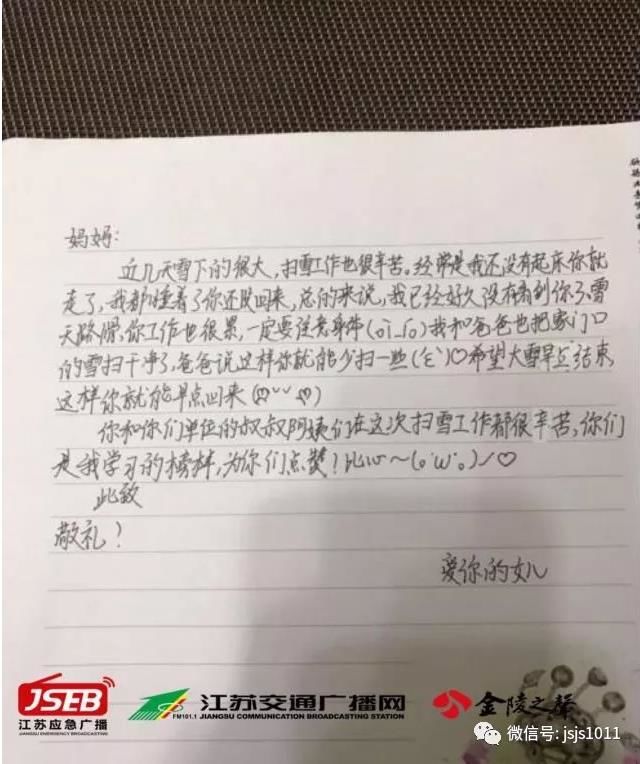 妈妈:
近几天雪下的很大，扫雪工作也很辛苦。经常是我还没有起床你就
走了，我都睡着了你还没回来，总的来说，我已经好久没有看到你了，雪
天路滑，你工作也很累，一定要注意身体(oi_io)我和爸爸也把家门口
的雪扫干净了，爸爸说这样你就能少扫一些(ε`)♡希望大雪早点结束，
这样你就能早点回来(ღ˘⌣˘ღ)
你和你们单位的叔叔阿姨们在这次扫雪工作都很辛苦，你们
是我学习的榜样，为你们点赞！比心~(o´ω`o)ノ♡
此致
敬礼！
爱你的女儿
JSEB
江苏应急广播
JIANGSU EMERGENCY BROADCASTING
FM101.1
江苏交通广播网
JIANGSU COMMUNICATION BROADCASTING STATION
金陵之声
微信号: jsjs1011